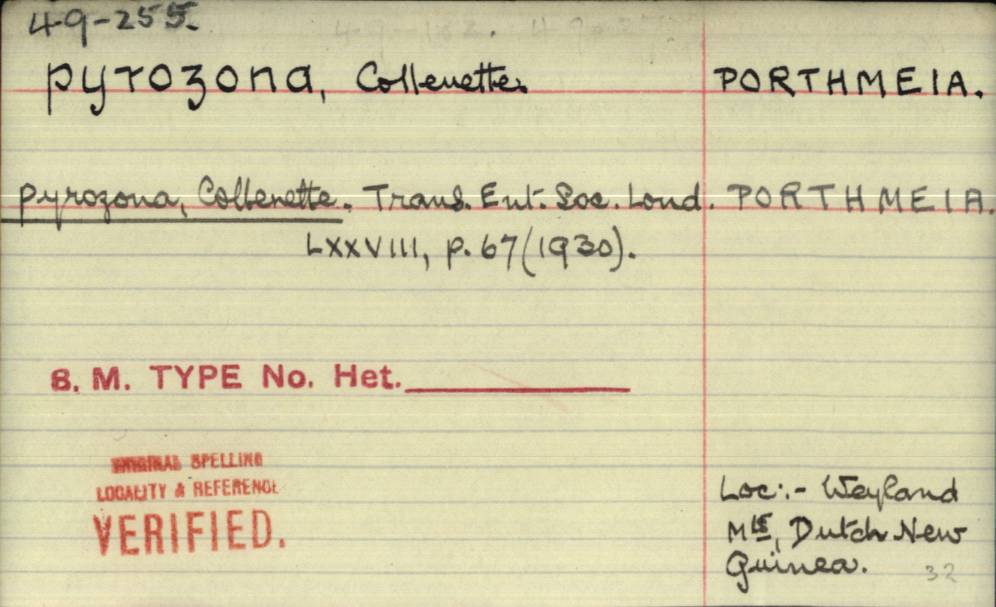 49-255.
pyrozona, Collenette. PORTHMEIA.
pyrozona, Collenette. Trans. Ent. Soc. Lond. PORTHMEIA.
LXXVIII, p. 67 (1930).
B. M. TYPE No. Het.
ORIGINAL SPELLING
LOCALITY & REFERENCE
VERIFIED.
Loc:- Weyland
Mts, Dutch New
Guinea. 32